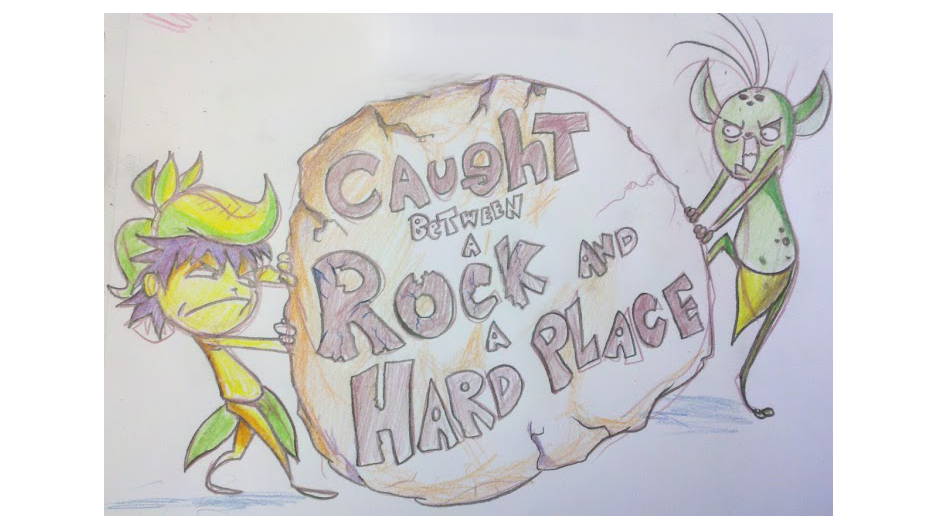 CAUghT
BETWEEN
A
ROCK AND
A
HARD PLACE